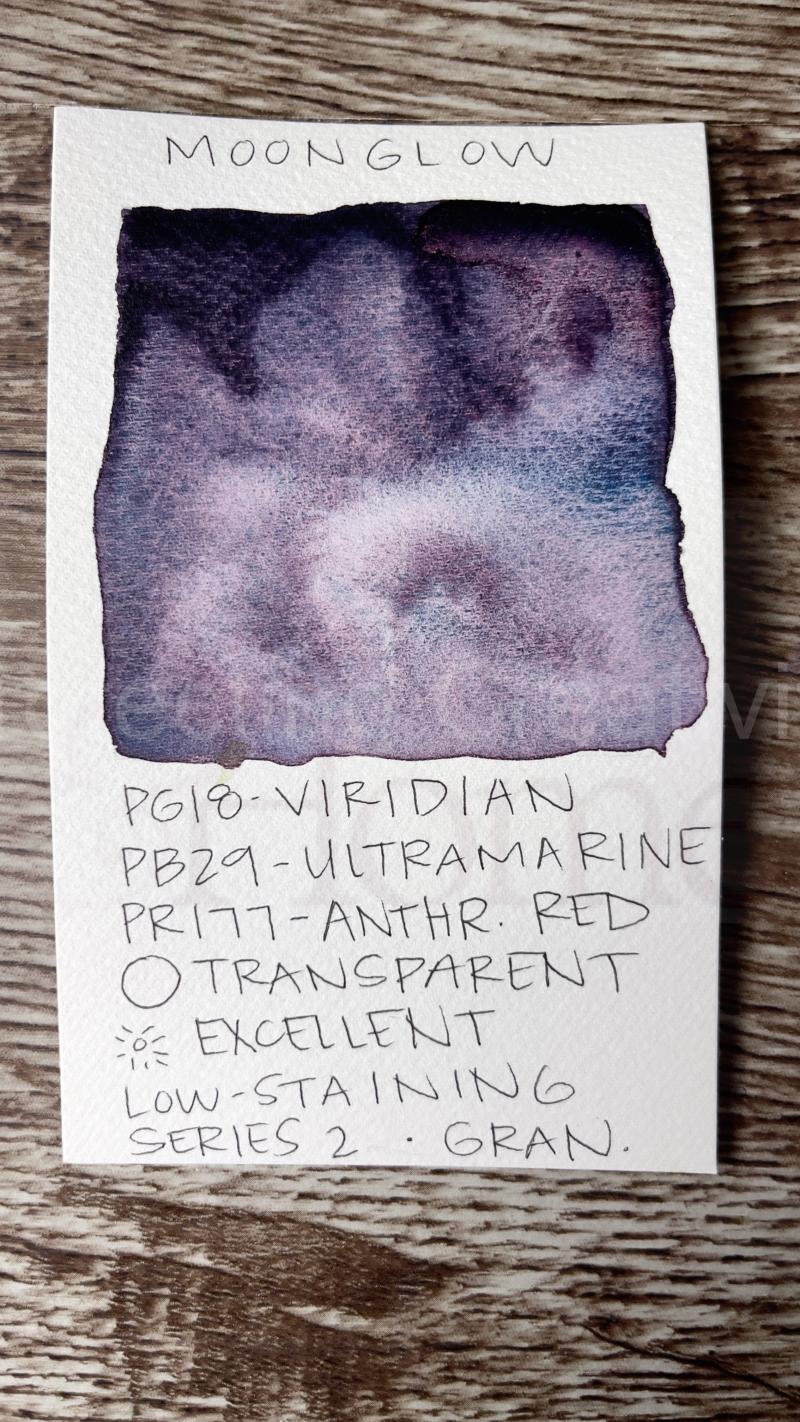 MOONGLOW
PG18-VIRIDIAN
PB29-ULTRAMARINE
PR177-ANTHR. RED
TRANSPARENT
EXCELLENT
LOW-STAINING
SERIES 2 · GRAN.